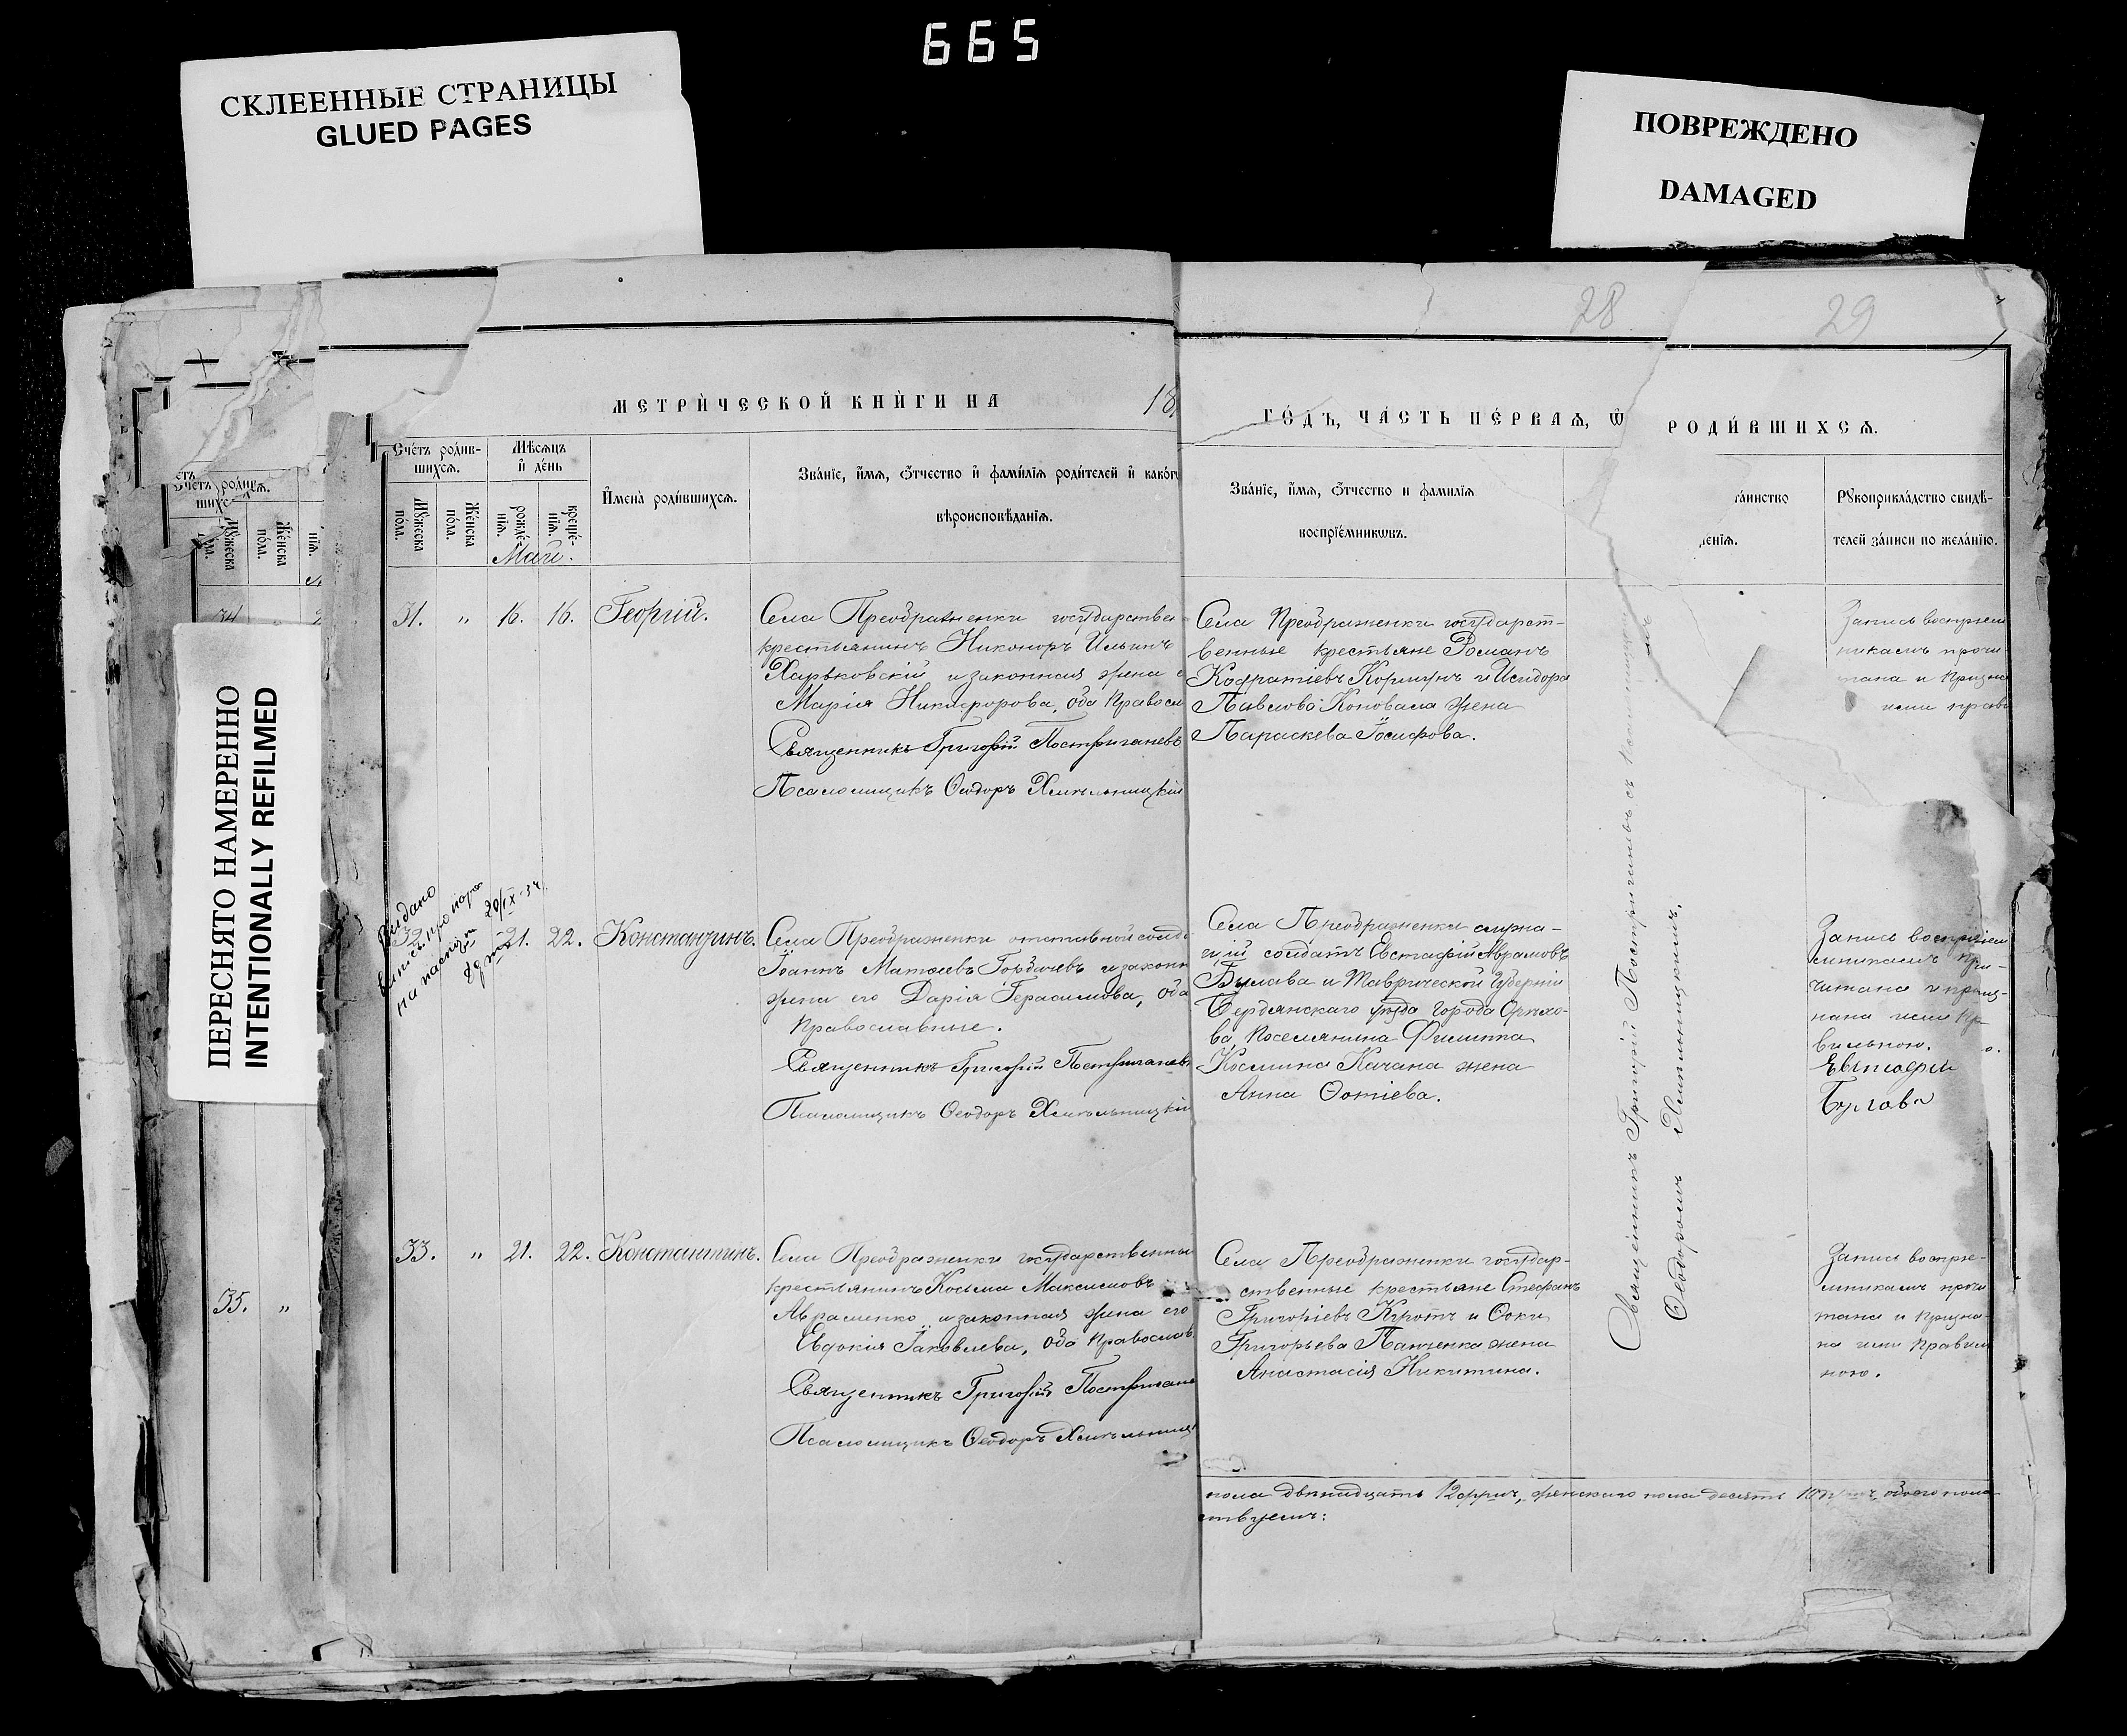 665
СКЛЕЕННЫЕ СТРАНИЦЫ
GLUED PAGES
ПОВРЕЖДЕНО
DAMAGED
ПЕРЕСНЯТО НАМЕРЕННО
INTENTIONALLY REFILMED
28
29
МЕТРИ́ЧЕСКОЙ КНИ́ГИ НА 18
ГО́ДЪ, ЧА́СТЬ ПЕ́РВАЯ, Ѡ РОДИ́ВШИХСЯ.
Сче́тъ роди́в-
шихся.
Мѣсяцъ
и де́нь
Му́жеска
по́ла.
Же́нска
по́ла.
рожде́-
нія.
креще́-
нія.
И́мена роди́вшихся.
Зва́ніе, и́мя, о́тчество и фами́лія роди́телей и како́г
вѣроисповѣ́данія.
Зва́ніе, и́мя, о́тчество и фами́лія
воспріе́мниковъ.
таинство
Рукоприкла́дство свидѣ́-
телей за́писи по жела́нію.
Маій.
31. " 16. 16. Георгій.
Села Преображенки государствен
крестьянинъ Никоноръ Ильинъ
Харьковскій и законная жена
Марія Никифорова, оба Правосл
Священникъ Григорій Постригачевъ
Псаломщикъ Ѳеодоръ Хмѣльницкій
Села Преображенки государст-
венные крестьяне Романъ
Кодратіевъ Коршунъ и Исидора
Павлова Коновала жена
Параскева Іосифова.
Запись воспріем
никамъ прочи-
тана и Призна
ими прав
Видано
20/IX
32. 21. 22. Константинъ.
Села Преображенки отставной солд
Іоаннъ Матѳеевъ Гордичевъ и законн
жена его Дарія Герасимова, оба
Православные.
Священникъ Григорій Постригачевъ
Псаломщикъ Ѳеодоръ Хмѣльницкій
Села Преображенки служа-
щій солдатъ Евстафій Аврамовъ
Булава и Таврической Губерніи
Бердянскаго уѣзда города Орѣхо-
ва, Поселянина Филиппа
Космина Качана жена
Анна Фотіева.
Запись воспріем
мникамъ Про-
читана и призн-
нана ими Пр
вильною.
Евстафи
Булава
Священникъ Григорій Постригачевъ съ Псаломщикомъ
Ѳеодоромъ Хмѣльницкимъ.
33. " 21. 22. Константинъ.
Села Преображенки государственны
крестьянинъ Косьма Максимовъ
Авраменко и законная жена его
Евдокія Іаковлева, оба Православ
Священникъ Григорій Постригаче
Псаломщикъ Ѳеодоръ Хмѣльниц
Села Преображенки государ-
ственные крестьяне Стефанъ
Григоріевъ Кротъ и Ѳоки
Григорьева Панченка жена
Анастасія Никитина.
Запись воспріе-
мникамъ прочи
тана и Призна-
на ими Правил
ною.
пола двѣнадцать 12 женскаго пола десять 10 обоего пола
ствуемъ:
34
35. "